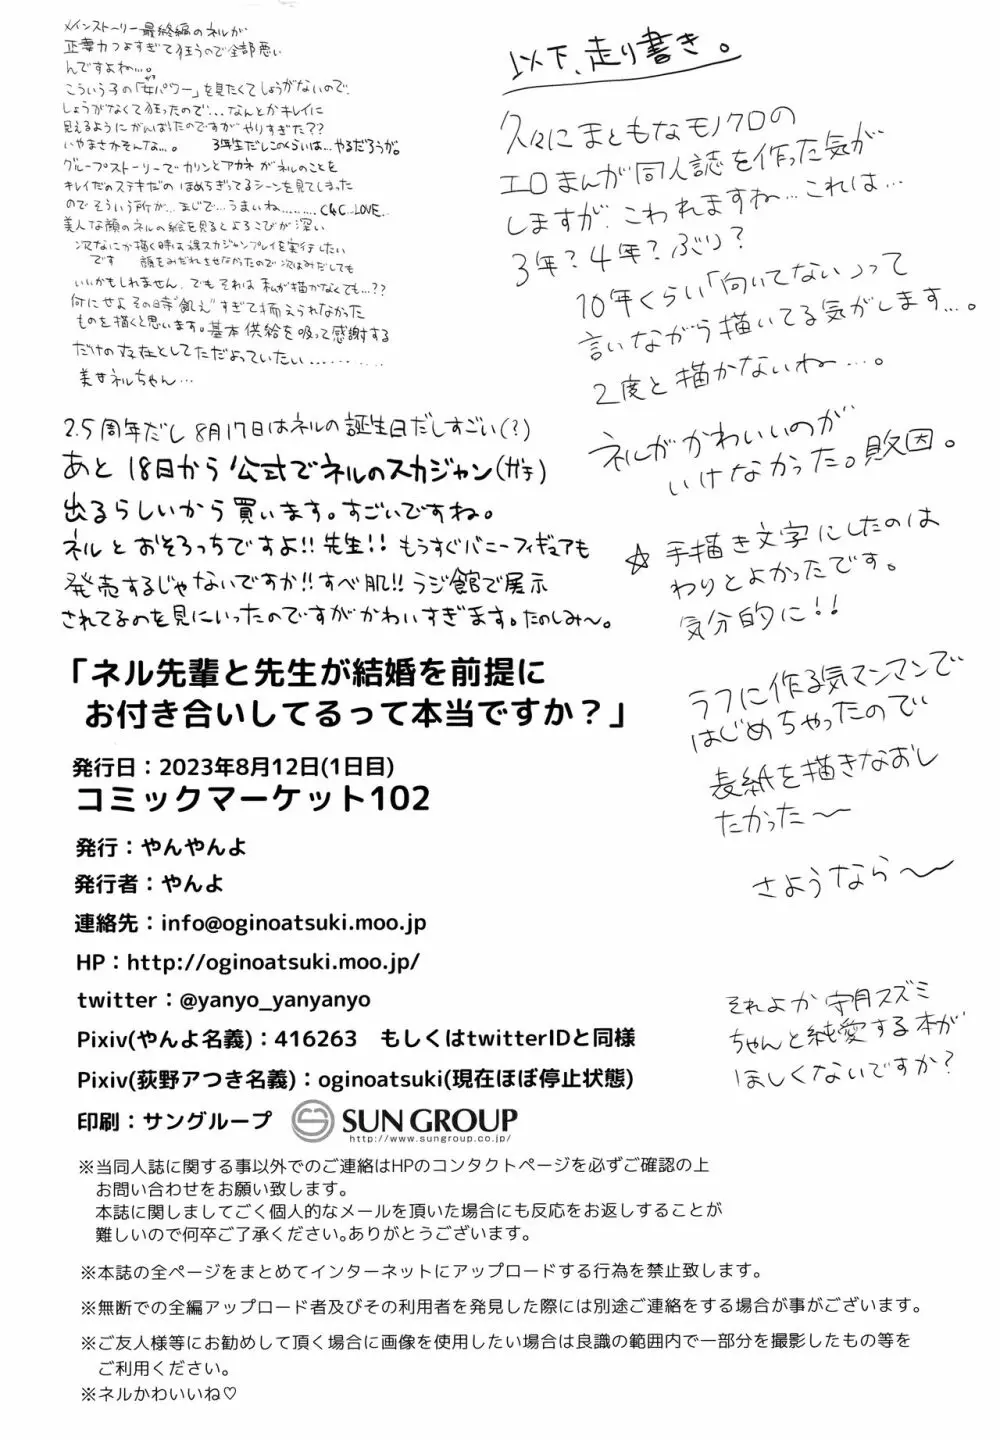 メインストーリー最終編のネルが
正妻力つよすぎて狂うので全部悪い
んですよね…。
こういう子の「女パワー」を見たくてしょうがないので、
しょうがなくて狂ったので…なんとかキレイに
見えるようにがんばったのですがやりすぎた??
いやまさかそんな…。 3年生だしこのくらいは…やるだろうが。
グループストーリーでカリンとアカネがネルのことを
キレイだのステキだの ほめちぎってるシーンを見てしまった
のでそういう所が…まじで…うまいね……… C&C…LOVE…
美人な顔のネルの絵を見るとよろこびが深い
次なにか描く時は裸スカジャンプレイを実行したい
です 顔をみだれさせなかったので次はみだしても
いいかもしれません、でもそれは私が描かなくても…??
何にせよその時"飢え"すぎて抑えられなかった
ものを描くと思います。基本供給を吸って感謝する
だけの存在としてただよっていたい…………
美女ネルちゃん…
2.5周年だし8月17日はネルの誕生日だしすごい(?)
あと 18日から 公式でネルのスカジャン(ガチ)
出るらしいから買います。すごいですね。
ネルとおそろっちですよ!! 先生!! もうすぐバニーフィギュアも
発売するじゃないですか!! すべ肌!! ラジ館で展示
されてるのを見にいったのですがかわいすぎます。たのしみ〜。
以下、走り書き。
久々にまともなモノクロの
エロまんが同人誌を作った気が
しますが、こわれますね…これは…
3年?4年?ぶり?
10年くらい「向いてない」って
言いながら描いてる気がします…。
2度と描かないね…。
ネルがかわいいのが
いけなかった。敗因。
☆ 手描き文字にしたのは
わりとよかったです。
気分的に!!
ラフに作る気マンマンで
はじめちゃったので
表紙を描きなおし
たかった〜
さようなら〜
それよか 守月スズミ
ちゃんと純愛する本が
ほしくないですか?
「ネル先輩と先生が結婚を前提に
お付き合いしてるって本当ですか？」
発行日：2023年8月12日(1日目)
コミックマーケット102
発行：やんやんよ
発行者：やんよ
連絡先：info@oginoatsuki.moo.jp
HP：http://oginoatsuki.moo.jp/
twitter：@yanyo_yanyanyo
Pixiv(やんよ名義)：416263 もしくはtwitterIDと同様
Pixiv(荻野アつき名義)：oginoatsuki(現在ほぼ停止状態)
印刷：サングループ SUN GROUP
http://www.sungroup.co.jp/
※当同人誌に関する事以外でのご連絡はHPのコンタクトページを必ずご確認の上
お問い合わせをお願い致します。
本誌に関しましてごく個人的なメールを頂いた場合にも反応をお返しすることが
難しいので何卒ご了承ください。ありがとうございます。
※本誌の全ページをまとめてインターネットにアップロードする行為を禁止致します。
※無断での全編アップロード者及びその利用者を発見した際には別途ご連絡をする場合が事がございます。
※ご友人様等にお勧めして頂く場合に画像を使用したい場合は良識の範囲内で一部分を撮影したもの等を
ご利用ください。
※ネルかわいいね♡